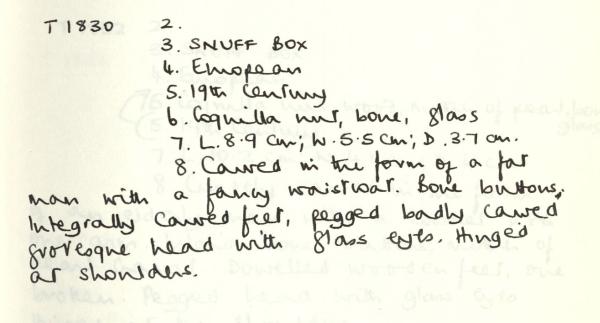 T 1830 2.
3. SNUFF BOX
4. European
5. 19th Century
6. Coquilla nut, bone, glass
7. L. 8.9 cm; W. 5.5 cm; D. 3.7 cm.
8. Carved in the form of a fat
man with a fancy waistcoat. Bone buttons.
Integrally carved feet, pegged badly carved
grotesque head with glass eyes. Hinged
at shoulders.